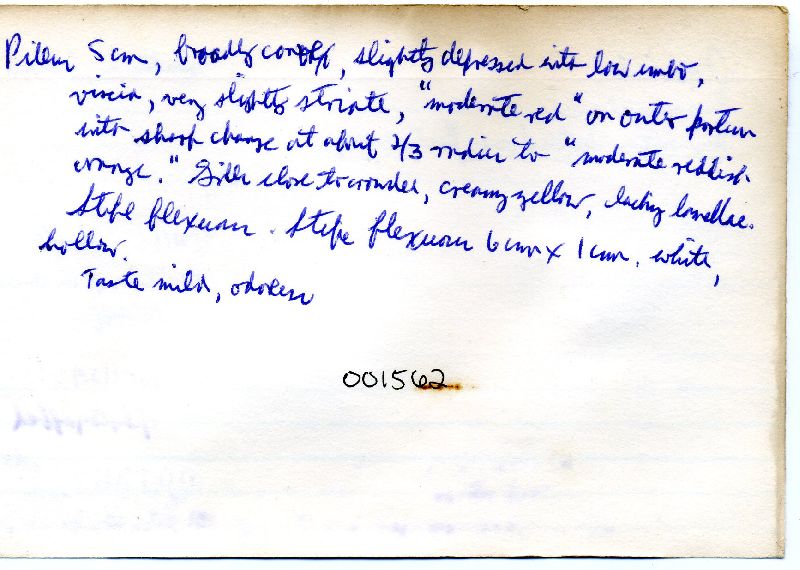 Pileus 5 cm, broadly convex, slightly depressed with low umbo,
viscid, very slightly striate, "moderate red" on outer portion
with sharp change at about 2/3 radius to "moderate reddish
orange." Gills close to crowded, creamy yellow, lacking lamellae.
Stipe flexuous. Stipe flexuous 6 cm x 1 cm, white,
hollow.
Taste mild, odorless
001562